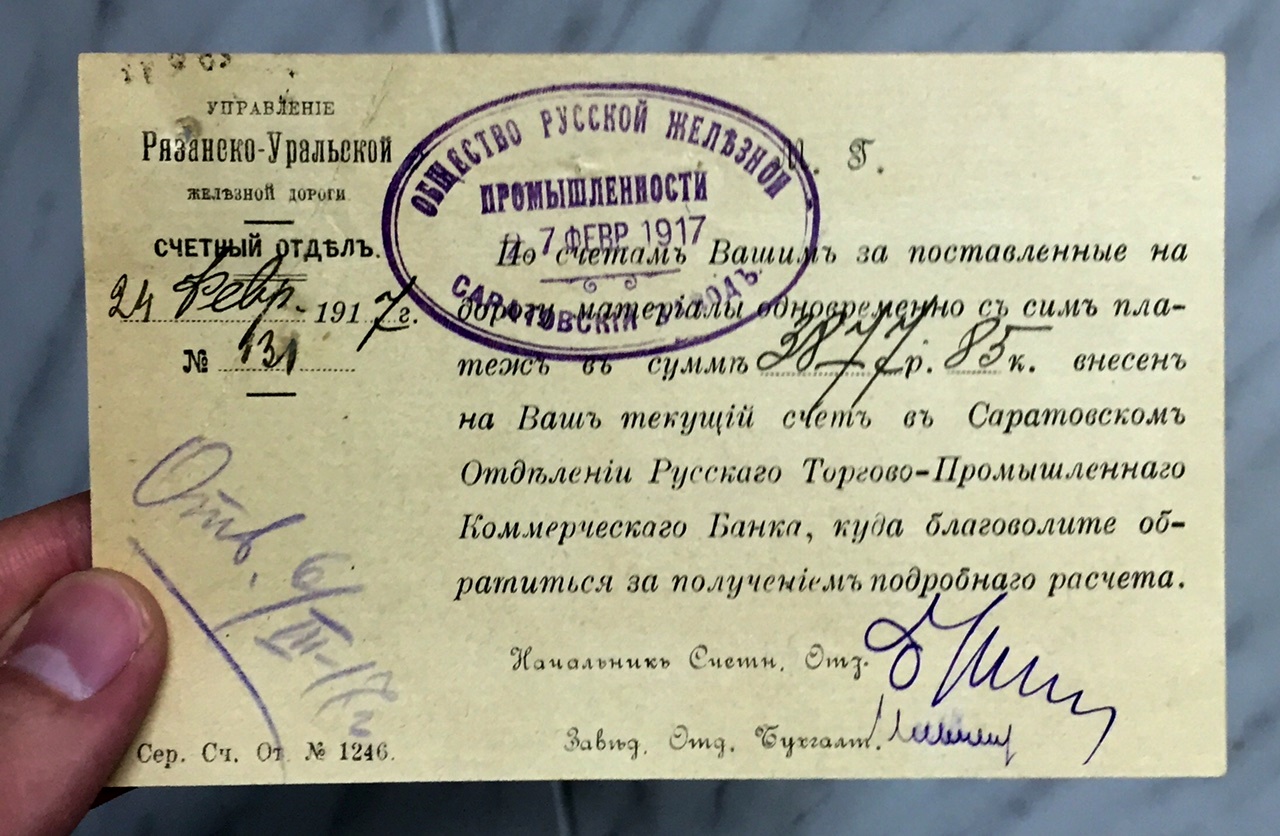 УПРАВЛЕНІЕ
Рязанско-Уральской
ЖЕЛѢЗНОЙ ДОРОГИ
СЧЕТНЫЙ ОТДѢЛЪ.
24 Февр. 1917г.
№ 131
ОБЩЕСТВО РУССКОЙ ЖЕЛѢЗНОЙ
ПРОМЫШЛЕННОСТИ
27 ФЕВР 1917
САРАТОВСКІЙ ЗАВОДЪ
М. Г.
По счетамъ Вашимъ за поставленные на
дорогу матеріалы одновременно съ симъ пла-
тежъ въ суммѣ 3877 р. 85 к. внесенъ
на Вашъ текущій счетъ въ Саратовскомъ
Отдѣленіи Русскаго Торгово-Промышленнаго
Коммерческаго Банка, куда благоволите об-
ратиться за полученіемъ подробнаго расчета.
Начальникъ Счетн. Отд.
Завѣд. Отд. Бухгалт.
Отв. 6/III-17г
Сер. Сч. От. № 1246.